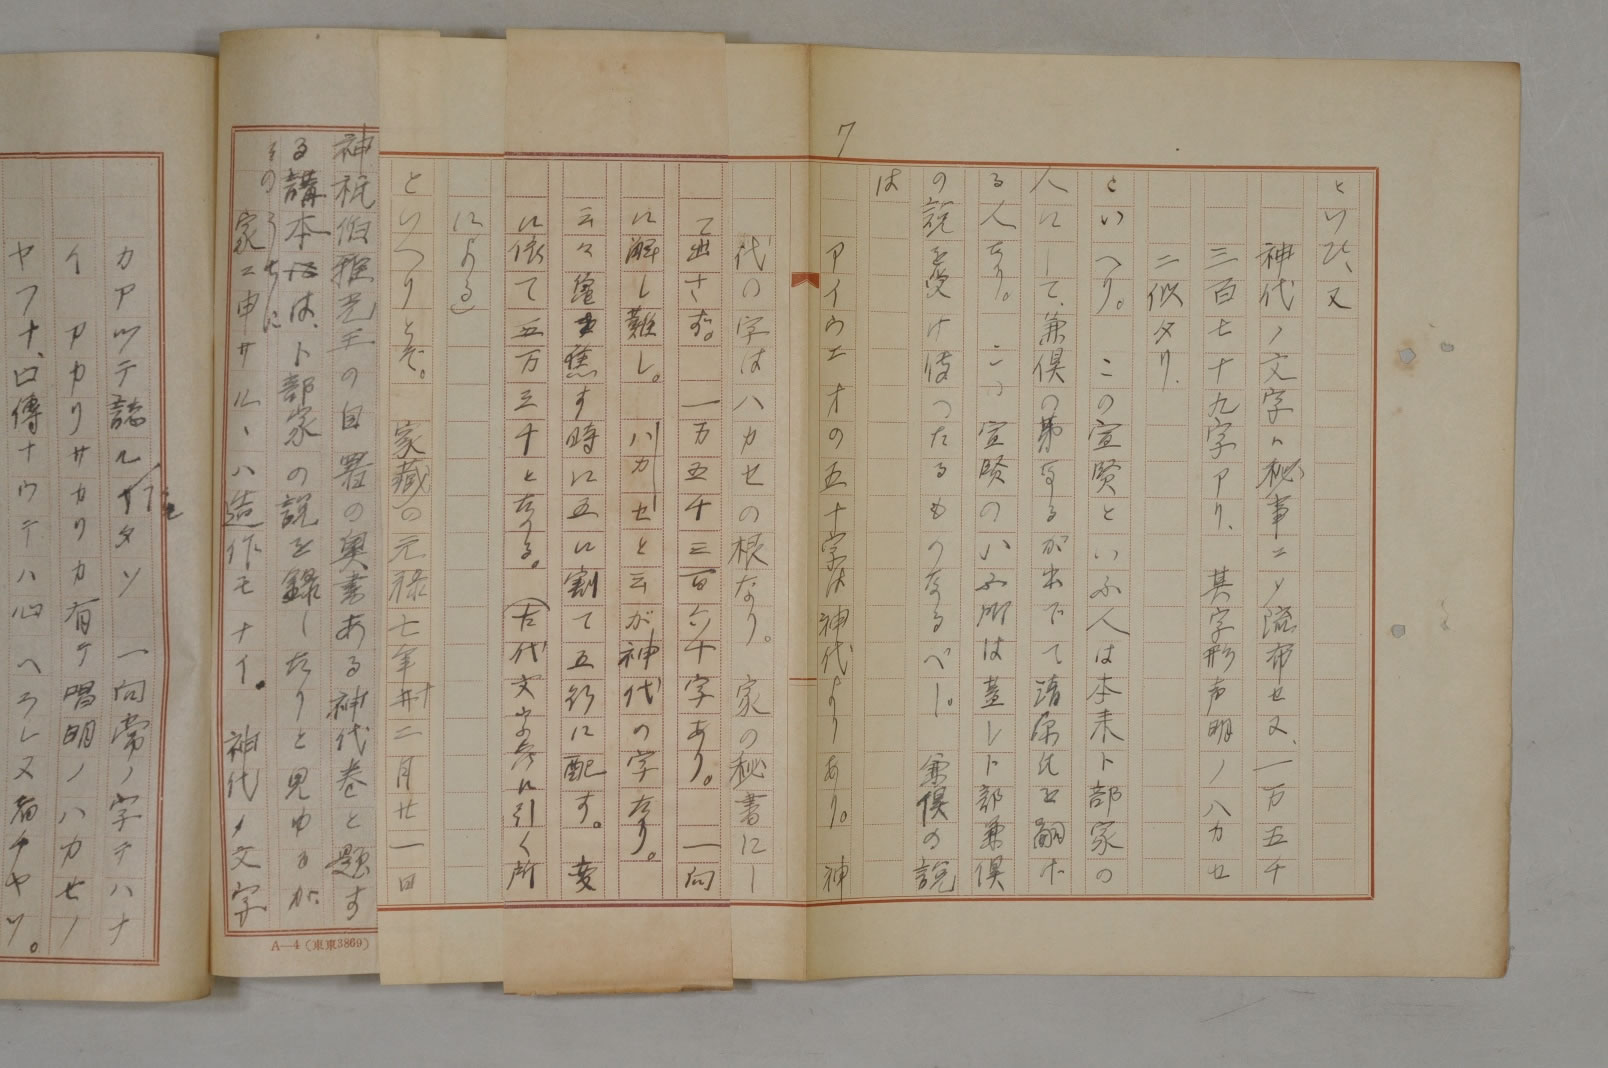 といひ、又
神代ノ文字ハ秘事ニメ流布セス、一万五千
三百七十九字アリ、其字形声明ノハカセ
ニ似タリ、
といへり。この宣賢といふ人は本来卜部家の
人にして、兼倶の第なるが出でて清原氏を嗣ホ
る人なり。この宣賢のいふ所は蓋し卜部兼倶
の説を受け傳つたるものなるべし。兼倶の説
は
7
アイウエオの五十字は神代よりあり。神
代の字はハカセの根なり。家の秘書にし
て出さず。一万五千三百六十字あり。一向
に解し難し。ハカセと云が神代の字なり。
云々亀ヲ焦す時に五に割て五行に配す。変
に依て五万三千と在る。(古代文字考に引く所
による)
といへりとぞ。家蔵の元禄七年廿二月廿一日
神祇伯雅光王の自署の奥書ある神代巻と題す
る講本は、卜部家の説を録したりと見ゆるが、
そのうちに
家ニ申サル、ハ造作モナイ。神代ノ文字
A—4(東東3869)
カアツテ誌ルイタソ 一向常ノ字テハナ
イ アカリサカリカ有テ唱明ノハカセノ
ヤフナ、口傳ナウテハ心ヘラレヌ者チヤソ。